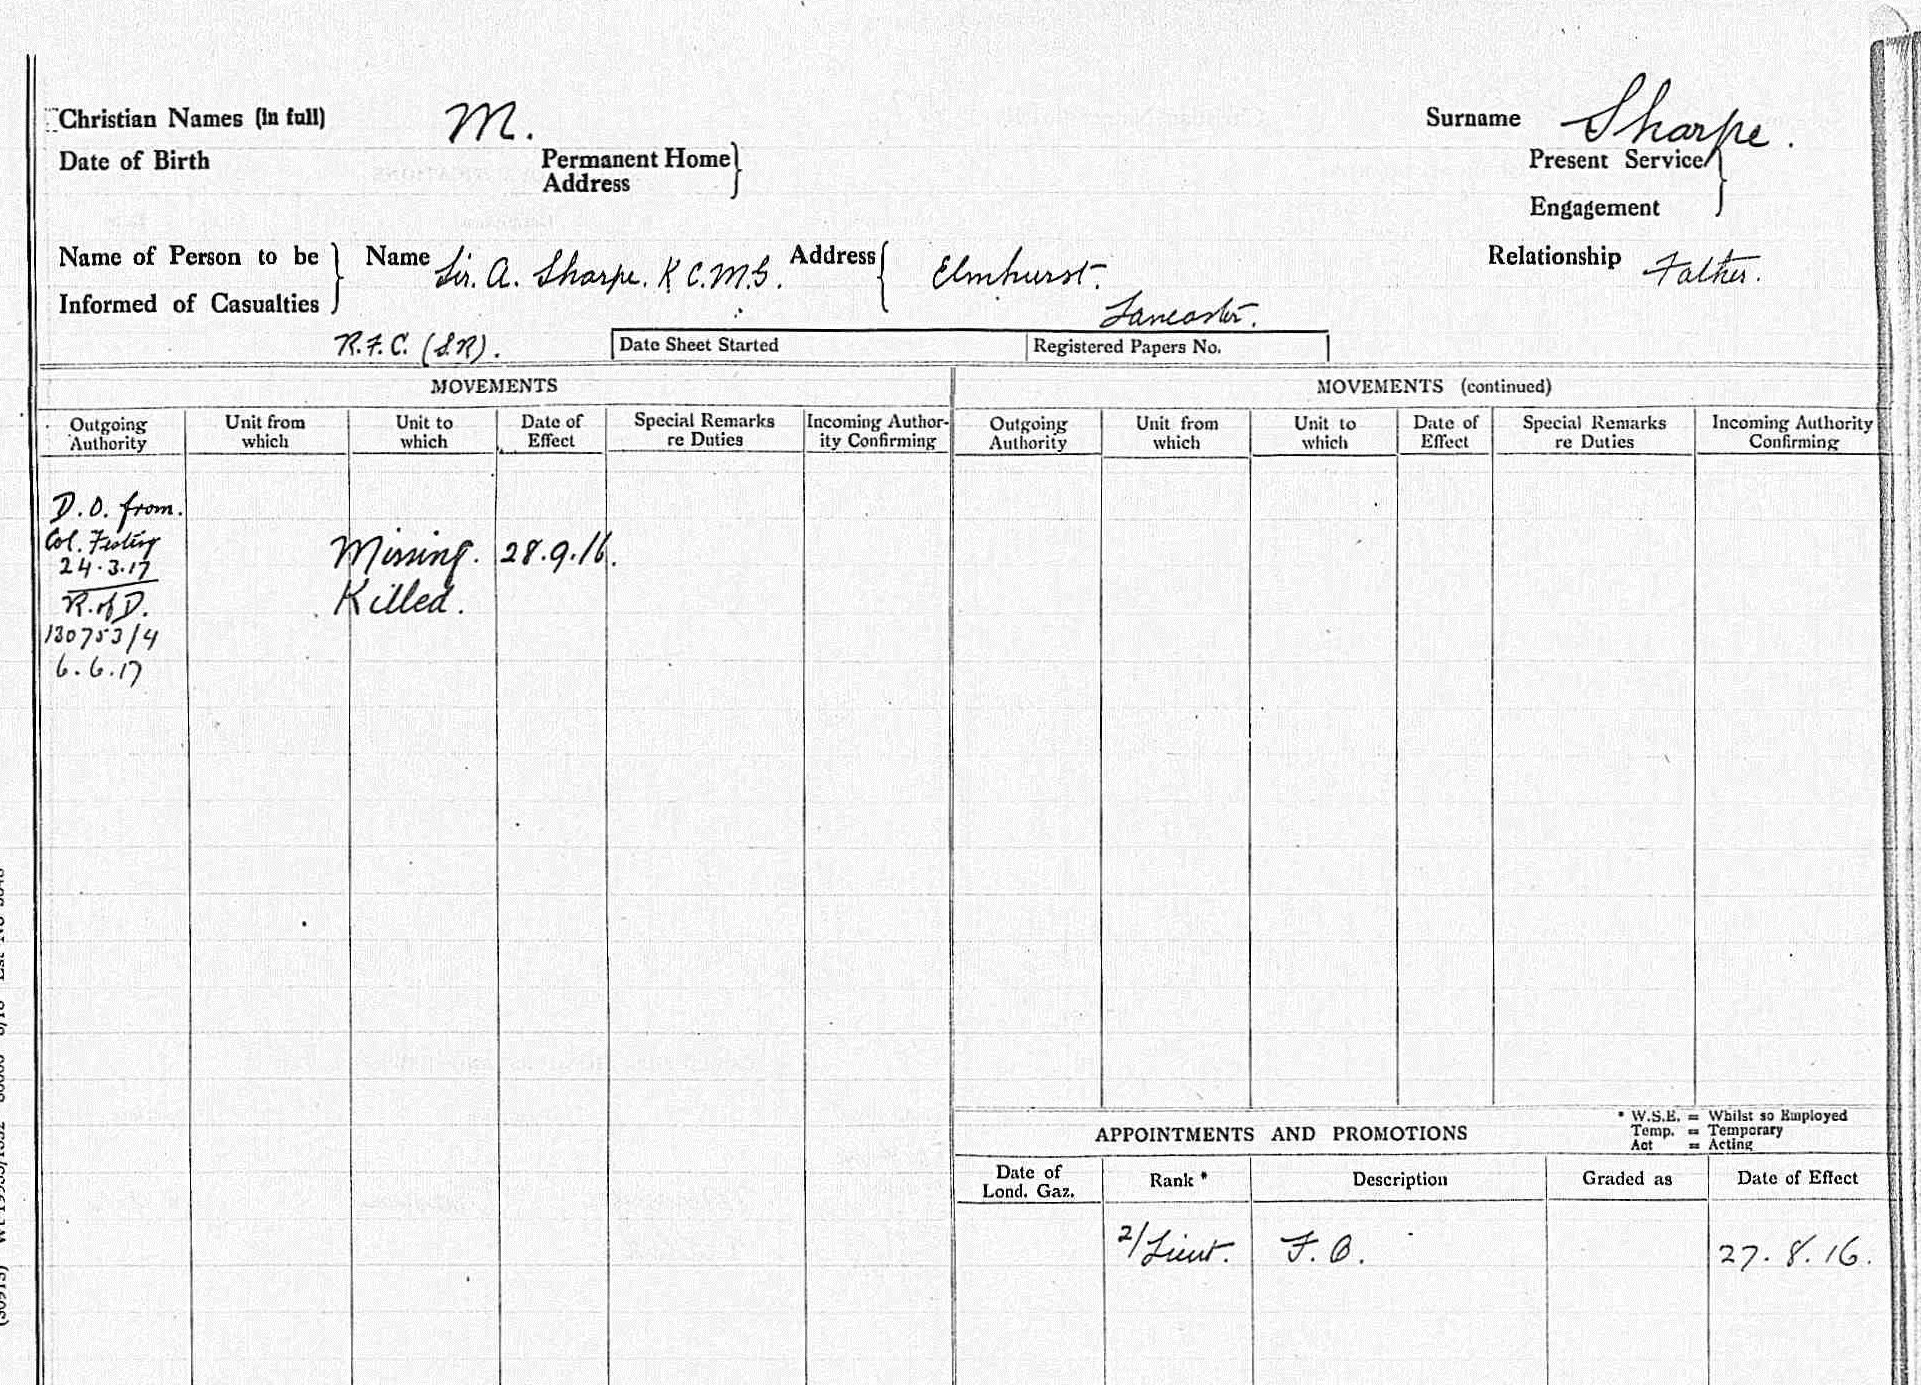 Christian Names (in full) M. Surname Sharpe.
Date of Birth Permanent Home Address Present Service Engagement
Name of Person to be Informed of Casualties Name Sir. A. Sharpe. K C.M.G. Address Elmhurst. Lancaster. Relationship Father.
R.F.C. (S.R). Date Sheet Started Registered Papers No.
MOVEMENTS MOVEMENTS (continued)
Outgoing Authority Unit from which Unit to which Date of Effect Special Remarks re Duties Incoming Author-ity Confirming Outgoing Authority Unit from which Unit to which Date of Effect Special Remarks re Duties Incoming Authority Confirming
D.O. from.
Col. Festing Missing. 28.9.16.
24.3.17
R. of D. Killed.
130753/4
6.6.17
* W.S.E. = Whilst so Employed
Temp. = Temporary
Act = Acting
APPOINTMENTS AND PROMOTIONS
Date of Lond. Gaz. Rank * Description Graded as Date of Effect
2/Lieut. F.O. 27.8.16.